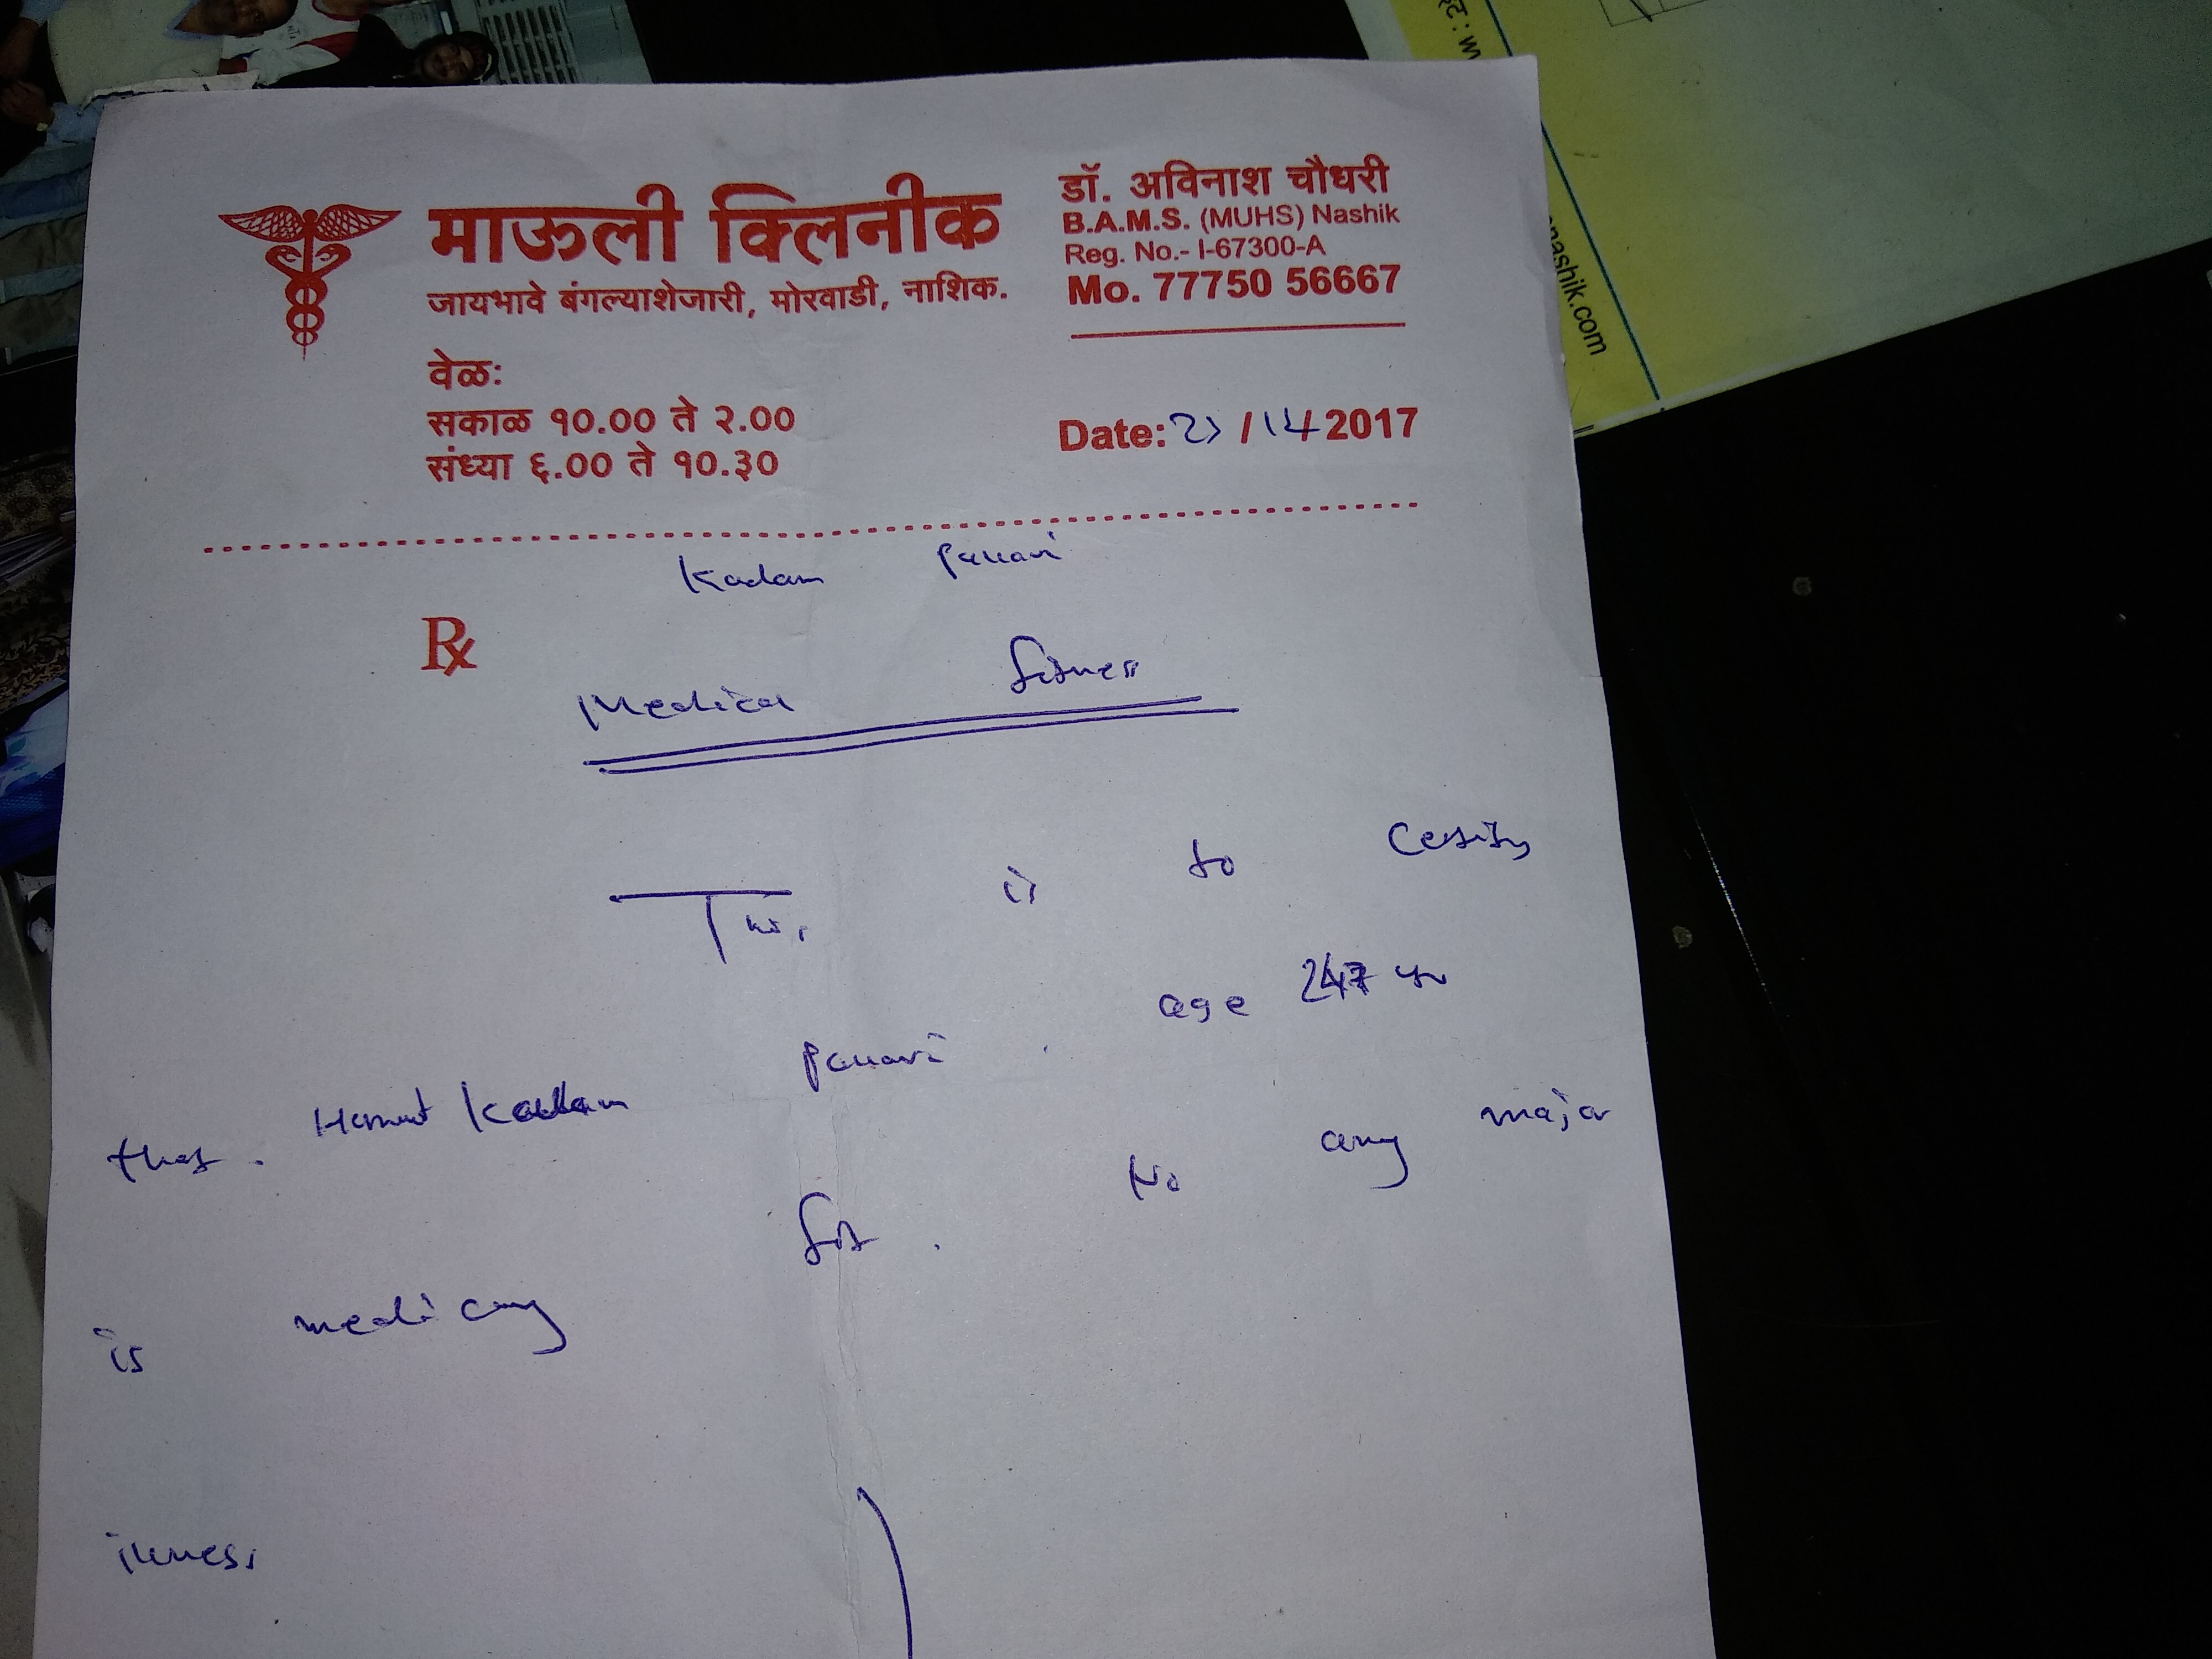 माऊली क्लिनीक
जायभावे बंगल्याशेजारी, मोरवाडी, नाशिक.
डॉ. अविनाश चौधरी
B.A.M.S. (MUHS) Nashik
Reg. No.- I-67300-A
Mo. 77750 56667
वेळ:
सकाळ १०.00 ते २.00
संध्या ६.00 ते १०.३०
Date: / 2017
Kadam Pauavi
Rx
Medical fitness
This is to Certify
that. Kadam Pauavi. age yr
is medically fit. No any major
illness
nashik.com